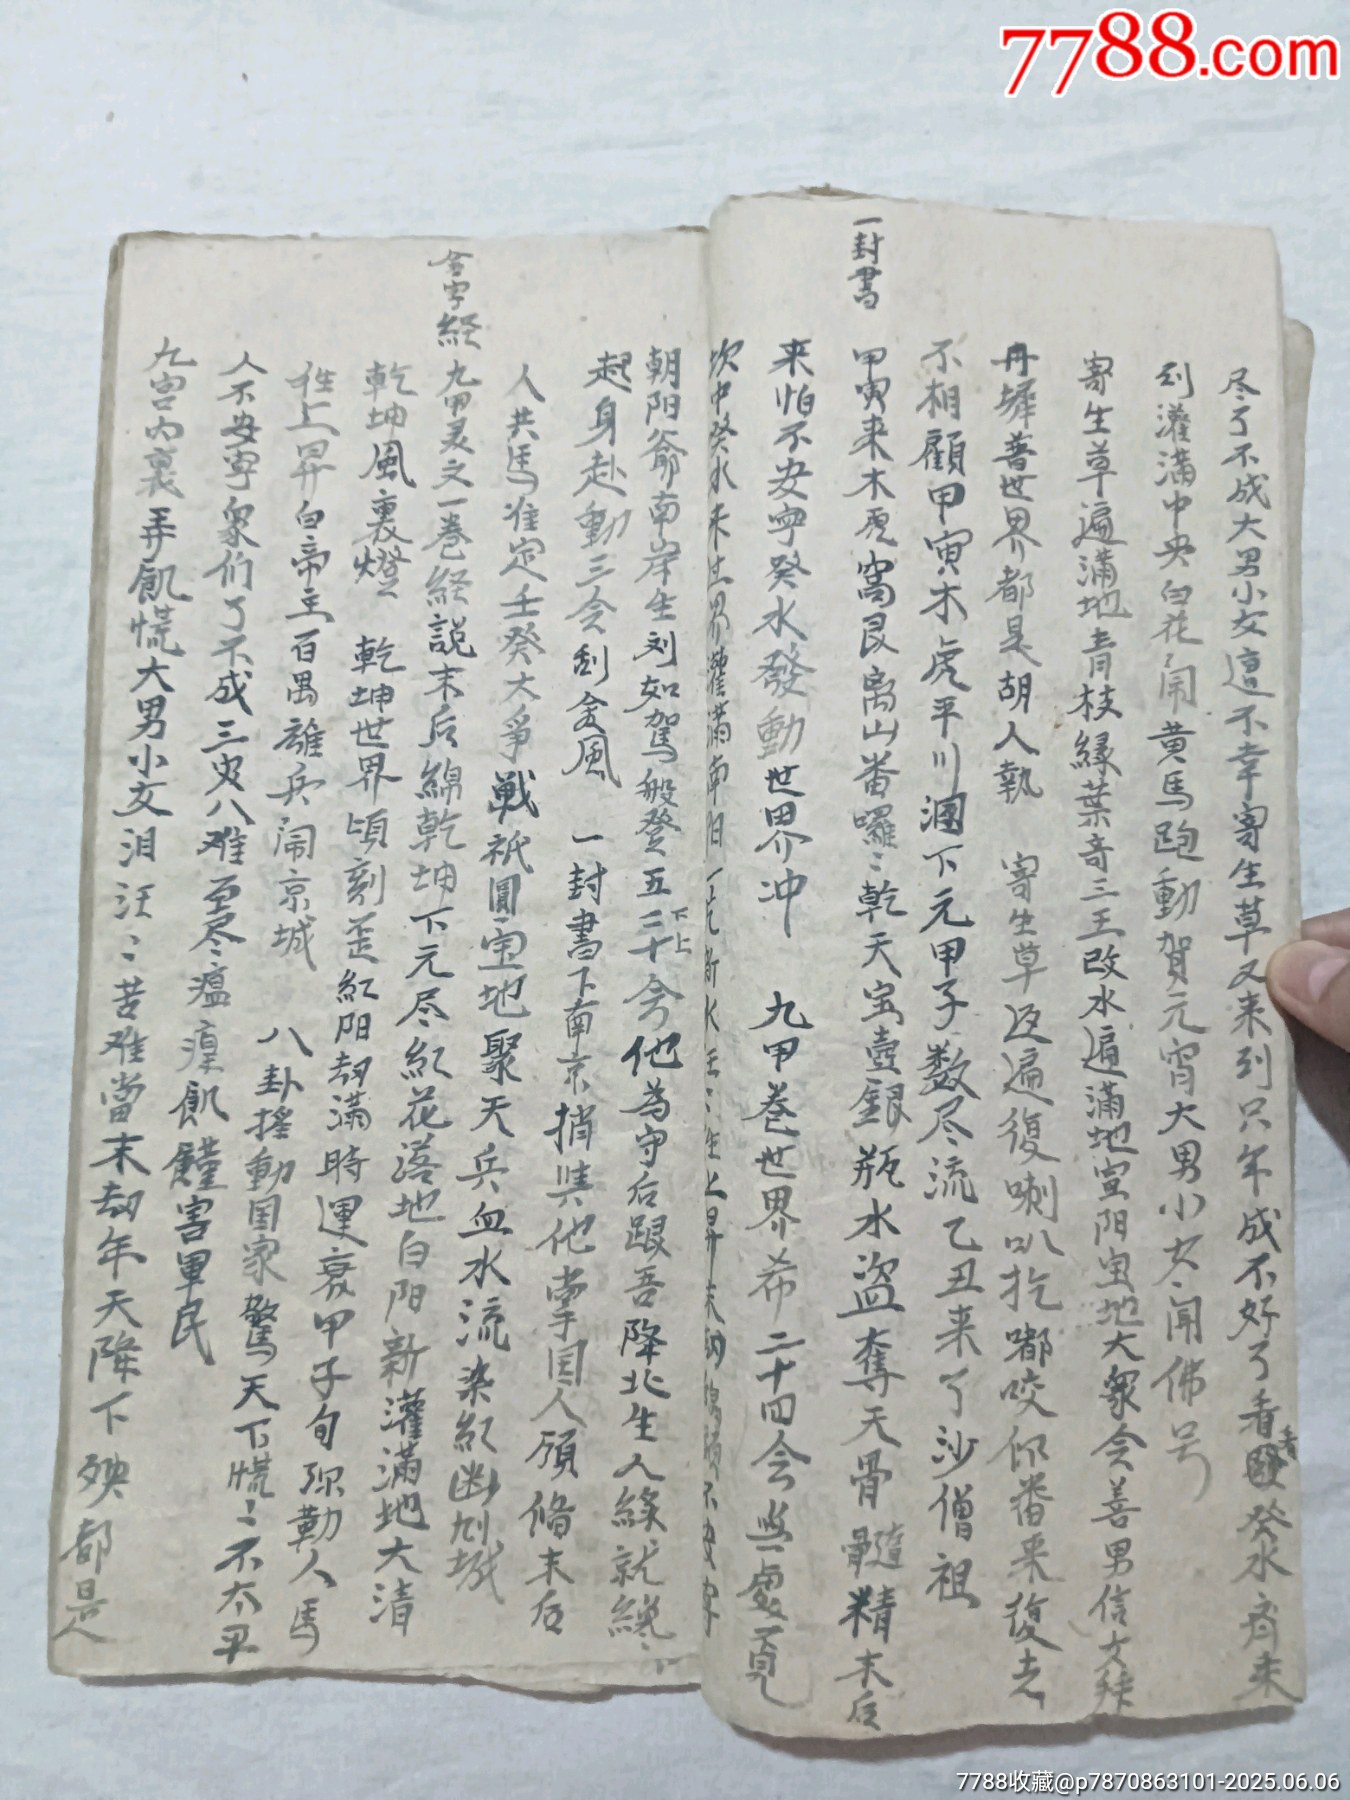 7788.com
尽了不成大男小女遭不幸寄生草又来到只年成不好了看癸水齐来
到灌满中央白花闹黄馬跑動賀元宵大男小女闻佛号
寄生草遍满地青枝緑葉奇三王改水遍满地宣阳宝地大衆会善男信女拜
丹墀普世界都是胡人執 寄生草返遍復喇叭扢嘟咬你番来復去
不相顧甲寅木虎平川涸下元甲子数尽流乙丑来了沙僧祖
一封書
甲寅来木虎窩艮离山番囉〻乾天宝壼銀瓶水盗奪天骨髓精末后
来怕不安宁癸水發動世界冲 九甲卷世界希二十四会無處覓
坎中癸水来世界灌满南阳
朝阳爺南岸生刘如駕般登五三十下上今他為守后跟吾降北生人緣就纔〻
起身赴動三会刮金風 一封書下南京捎與他掌国人領脩末后
人共馬准定壬癸大爭戰祇圓宝地聚天兵血水流染紅幽刘城
金字経
九甲灵文一卷経説末后綿乾坤下元尽紅花落地白阳新灌满地大清
乾坤風裏燈 乾坤世界頃刻歪紅阳刼满時運衰甲子旬弥勒人馬
往上昇白帝主百万離兵闹京城 八卦摇動国家驚天下慌〻不太平
人不安宁衆们了不成三灾八难要尽瘟瘴飢饉害軍民
九宫内裏弄飢慌大男小女泪汪〻苦难當末刼年天降下殃都是
7788收藏@p7870863101-2025.06.06